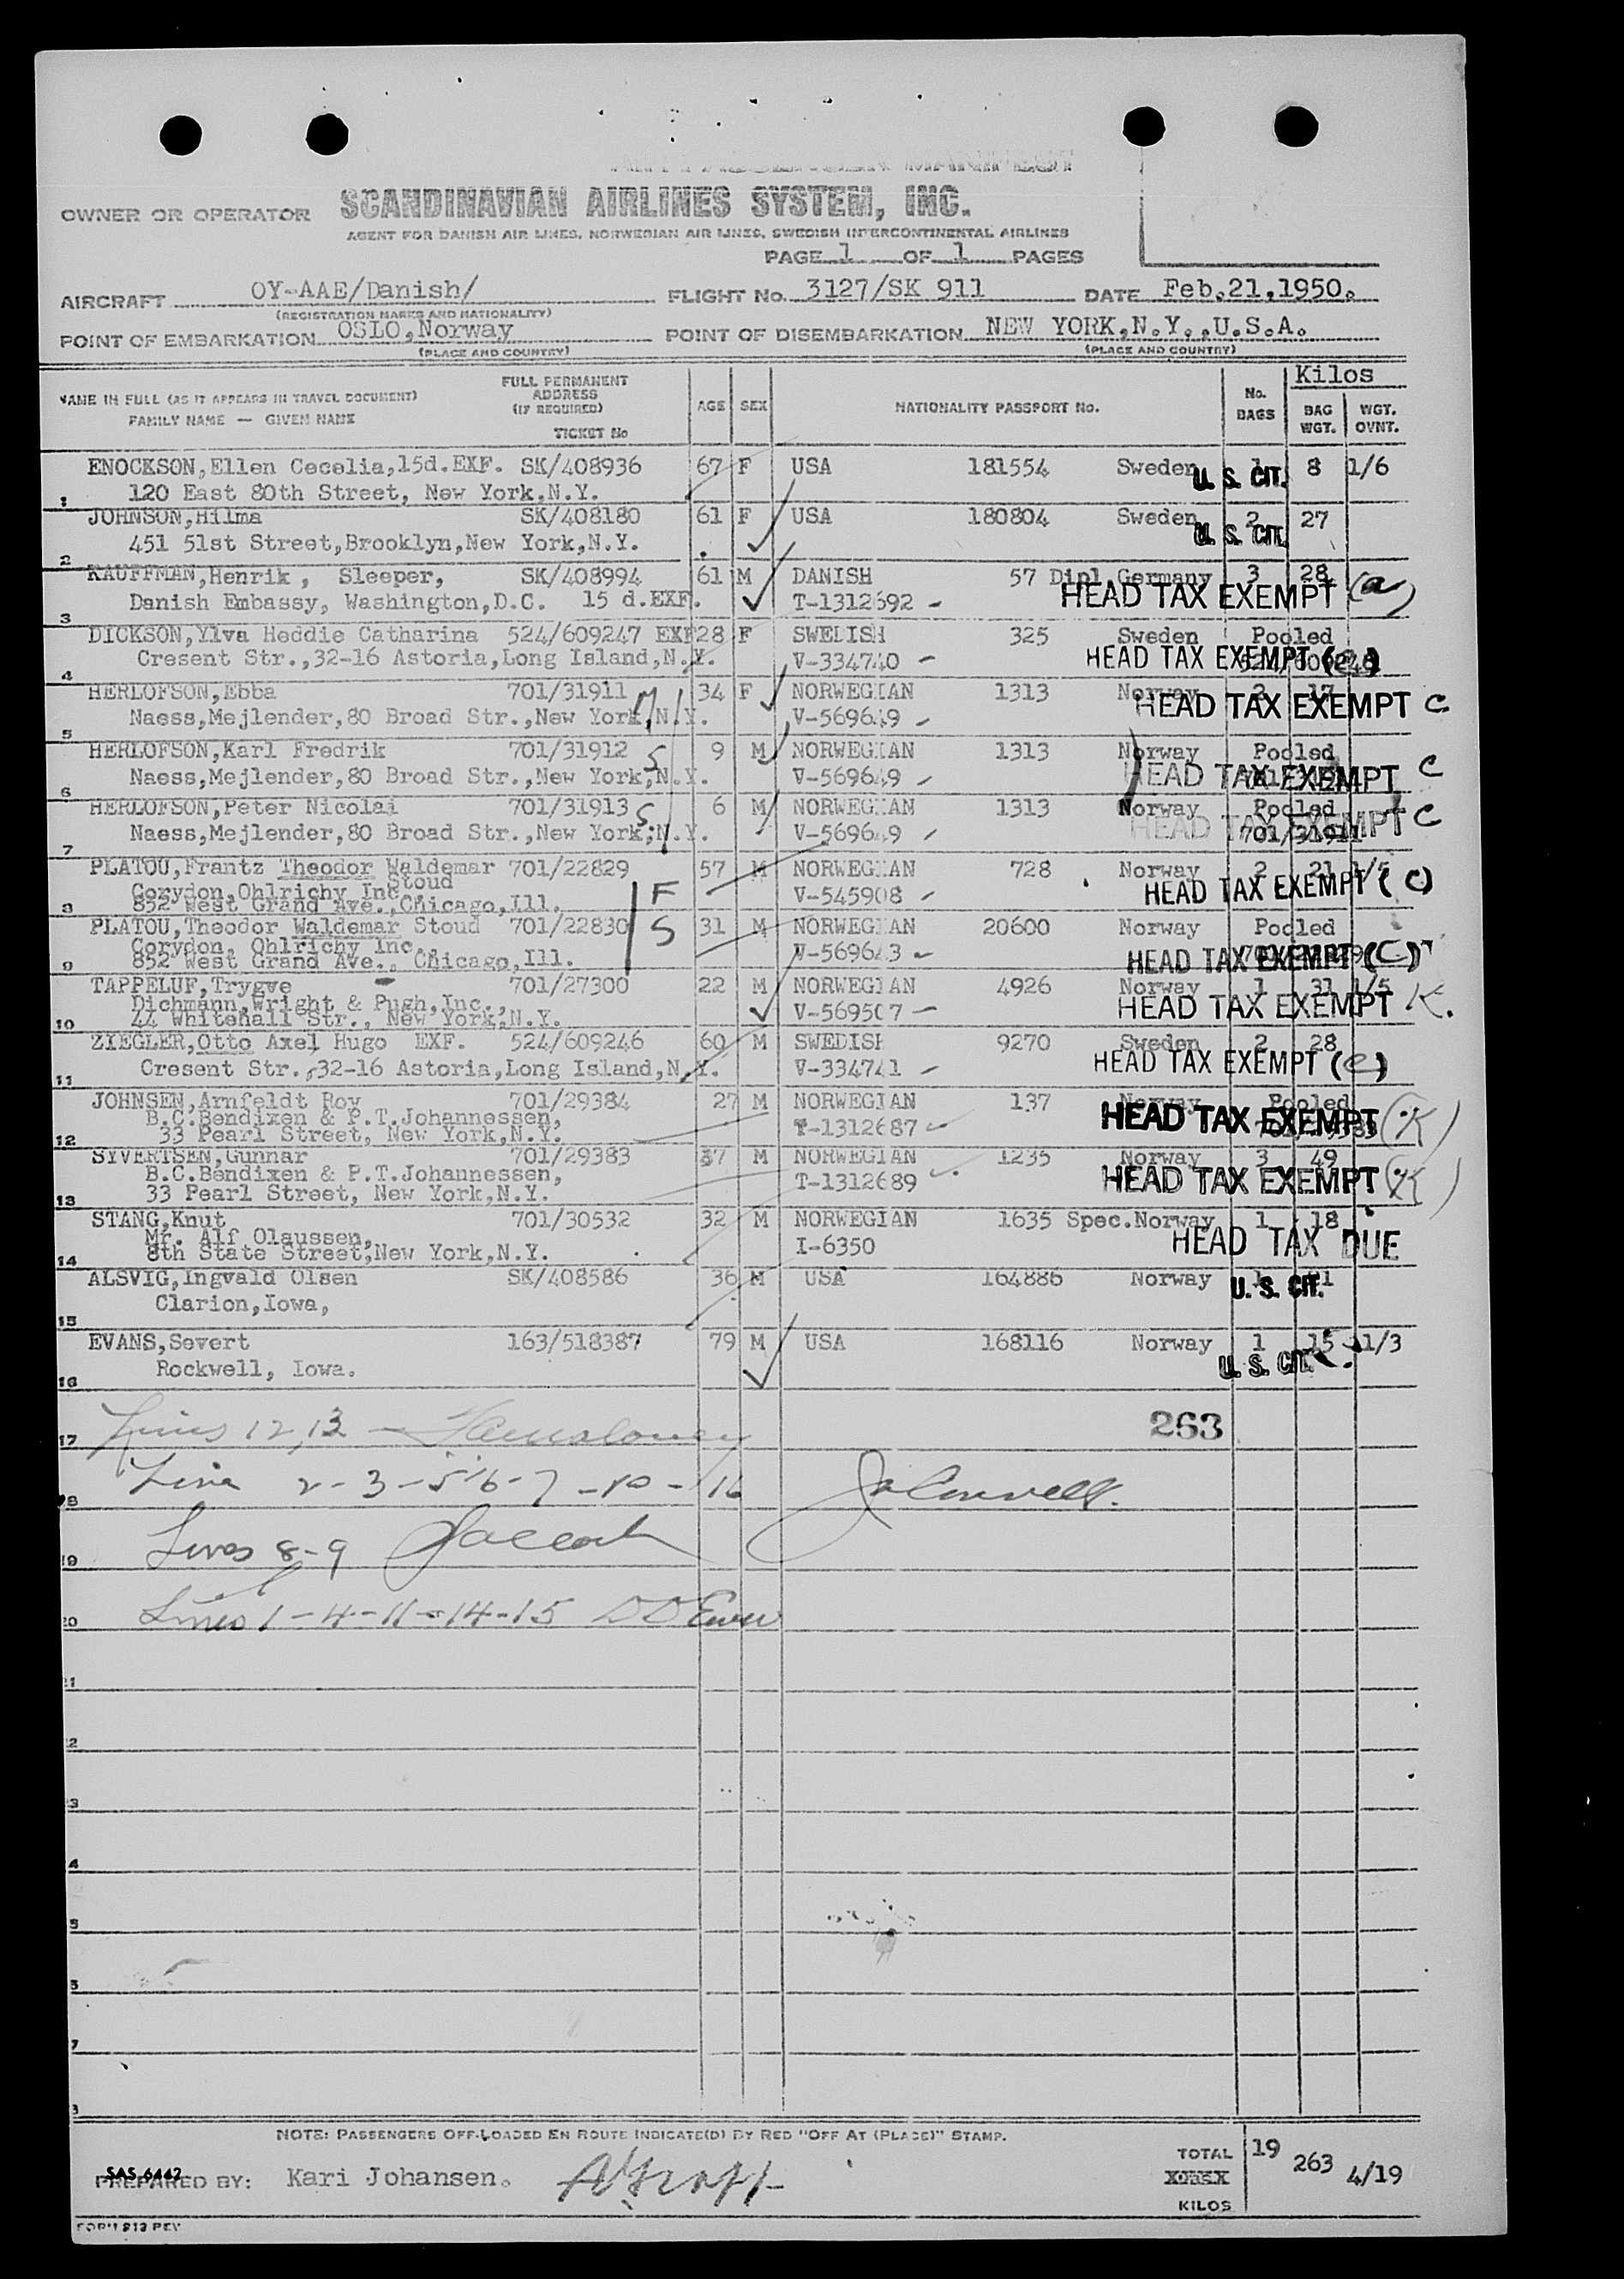 AIR PASSENGER MANIFEST
OWNER OR OPERATOR SCANDINAVIAN AIRLINES SYSTEM, INC.
AGENT FOR DANISH AIR LINES, NORWEGIAN AIR LINES, SWEDISH INTERCONTINENTAL AIRLINES
PAGE 1 OF 1 PAGES
AIRCRAFT OY-AAE/Danish/ FLIGHT No. 3127/SK 911 DATE Feb.21,1950.
(REGISTRATION MARKS AND NATIONALITY)
POINT OF EMBARKATION OSLO,Norway POINT OF DISEMBARKATION NEW YORK,N.Y.,U.S.A.
(PLACE AND COUNTRY) (PLACE AND COUNTRY)
NAME IN FULL (AS IT APPEARS IN TRAVEL DOCUMENT) FAMILY NAME — GIVEN NAME FULL PERMANENT ADDRESS (IF REQUIRED) TICKET No AGE SEX NATIONALITY PASSPORT No. No. BAGS Kilos BAG WGT. WGT. OVNT.
ENOCKSON,Ellen Cecelia,15d.EXF. SK/408936 67 F USA 181554 Sweden 1 8 1/6
1 120 East 80th Street, New York,N.Y. U. S. CIT.
JOHNSON,Hilma SK/408180 61 F USA 180804 Sweden 2 27
2 451 51st Street,Brooklyn,New York,N.Y. U. S. CIT.
KAUFFMAN,Henrik, Sleeper, SK/408994 61 M DANISH 57 Dipl.Germany 3 28
3 Danish Embassy, Washington,D.C. 15 d.EXF. T-1312692 HEAD TAX EXEMPT (a)
DICKSON,Ylva Heddie Catharina 524/609247 EXF 28 F SWEDISH 325 Sweden Pooled
4 Cresent Str.,32-16 Astoria,Long Island,N.Y. V-334740 HEAD TAX EXEMPT (c)
HERLOFSON,Ebba 701/31911 M 34 F NORWEGIAN 1313 Norway 2 17
5 Naess,Mejlender,80 Broad Str.,New York,N.Y. V-569649 HEAD TAX EXEMPT C
HERLOFSON,Karl Fredrik 701/31912 S 9 M NORWEGIAN 1313 Norway Pooled
6 Naess,Mejlender,80 Broad Str.,New York,N.Y. V-569649 HEAD TAX EXEMPT C
HERLOFSON,Peter Nicolai 701/31913 S 6 M NORWEGIAN 1313 Norway Pooled
7 Naess,Mejlender,80 Broad Str.,New York,N.Y. V-569649 HEAD TAX EXEMPT C 701/31911
PLATOU,Frantz Theodor Waldemar 701/22829 57 M NORWEGIAN 728 Norway 2 21 1/5
Stoud
Corydon,Ohlrichy Inc F V-545908 HEAD TAX EXEMPT (C)
8 852 West Grand Ave.,Chicago,Ill.
PLATOU,Theodor Waldemar Stoud 701/22830 S 31 M NORWEGIAN 20600 Norway Pooled
Corydon, Ohlrichy Inc., V-569643 HEAD TAX EXEMPT (C)
9 852 West Grand Ave., Chicago,Ill.
TAPPELUF,Trygve 701/27300 22 M NORWEGIAN 4926 Norway 1 31 1/5
Dichmann,Wright & Pugh,Inc., V-569507 HEAD TAX EXEMPT K.
10 44 Whitehall Str., New York,N.Y.
ZIEGLER,Otto Axel Hugo EXF. 524/609246 60 M SWEDISH 9270 Sweden 2 28
11 Cresent Str.,32-16 Astoria,Long Island,N.Y. V-334741 HEAD TAX EXEMPT (c)
JOHNSEN,Arnfeldt Roy 701/29384 27 M NORWEGIAN 137 Norway Pooled
B.C.Bendixen & P.T.Johannessen, T-1312687 HEAD TAX EXEMPT (K)
12 33 Pearl Street, New York,N.Y.
SYVERTSEN,Gunnar 701/29383 37 M NORWEGIAN 1235 Norway 3 49
B.C.Bendixen & P.T.Johannessen, T-1312689 HEAD TAX EXEMPT (K)
13 33 Pearl Street, New York,N.Y.
STANG,Knut 701/30532 32 M NORWEGIAN 1635 Spec.Norway 1 18
Mr. Alf Olaussen, I-6350 HEAD TAX DUE
14 8th State Street,New York,N.Y.
ALSVIG,Ingvald Olsen SK/408586 36 M USA 164886 Norway
15 Clarion,Iowa, U. S. CIT.
EVANS,Severt 163/518387 79 M USA 168116 Norway 1 15 1/3
16 Rockwell, Iowa. U. S. CIT.
Lines 12,13 — 263
17
Line 2-3-5-6-7-10-16
18
Lines 8-9
19
Lines 1-4-11-14-15
20
NOTE: PASSENGERS OFF-LOADED EN ROUTE INDICATE(D) BY RED "OFF AT (PLACE)" STAMP.
SAS 6442
PREPARED BY: Kari Johansen. TOTAL KILOS 19 263 4/19
FORM 813 REV